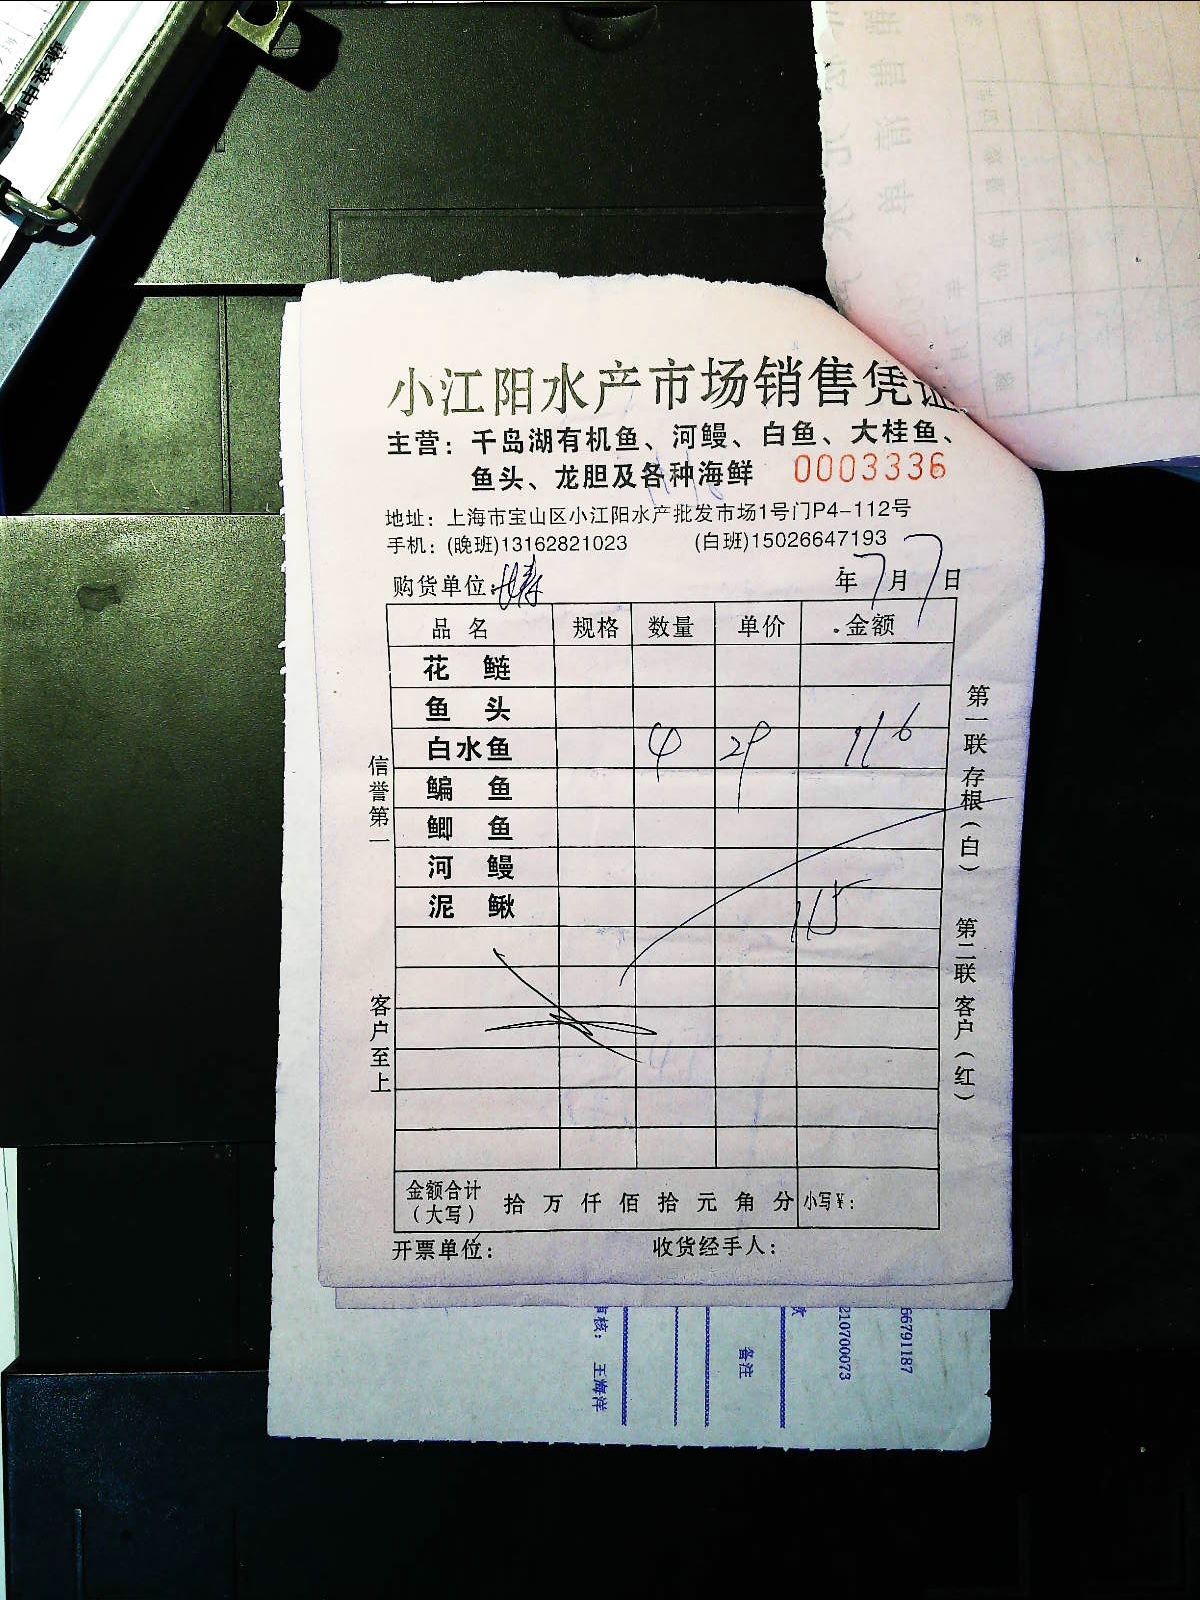 小江阳水产市场销售凭证
主营：千岛湖有机鱼、河鳗、白鱼、大桂鱼、
鱼头、龙胆及各种海鲜 0003336
地址：上海市宝山区小江阳水产批发市场1号门P4-112号
手机：(晚班)13162821023 (白班)15026647193
购货单位： 年7月7日
品名 规格 数量 单价 金额
花鲢
鱼头
白水鱼 4 29 116
鳊鱼
鲫鱼
河鳗
泥鳅 115
金额合计（大写） 拾万仟佰拾元角分 小写￥：
开票单位： 收货经手人：
信誉第一 客户至上
第一联 存根（白） 第二联 客户（红）
审核： 王海洋
备注
210700073
66791187